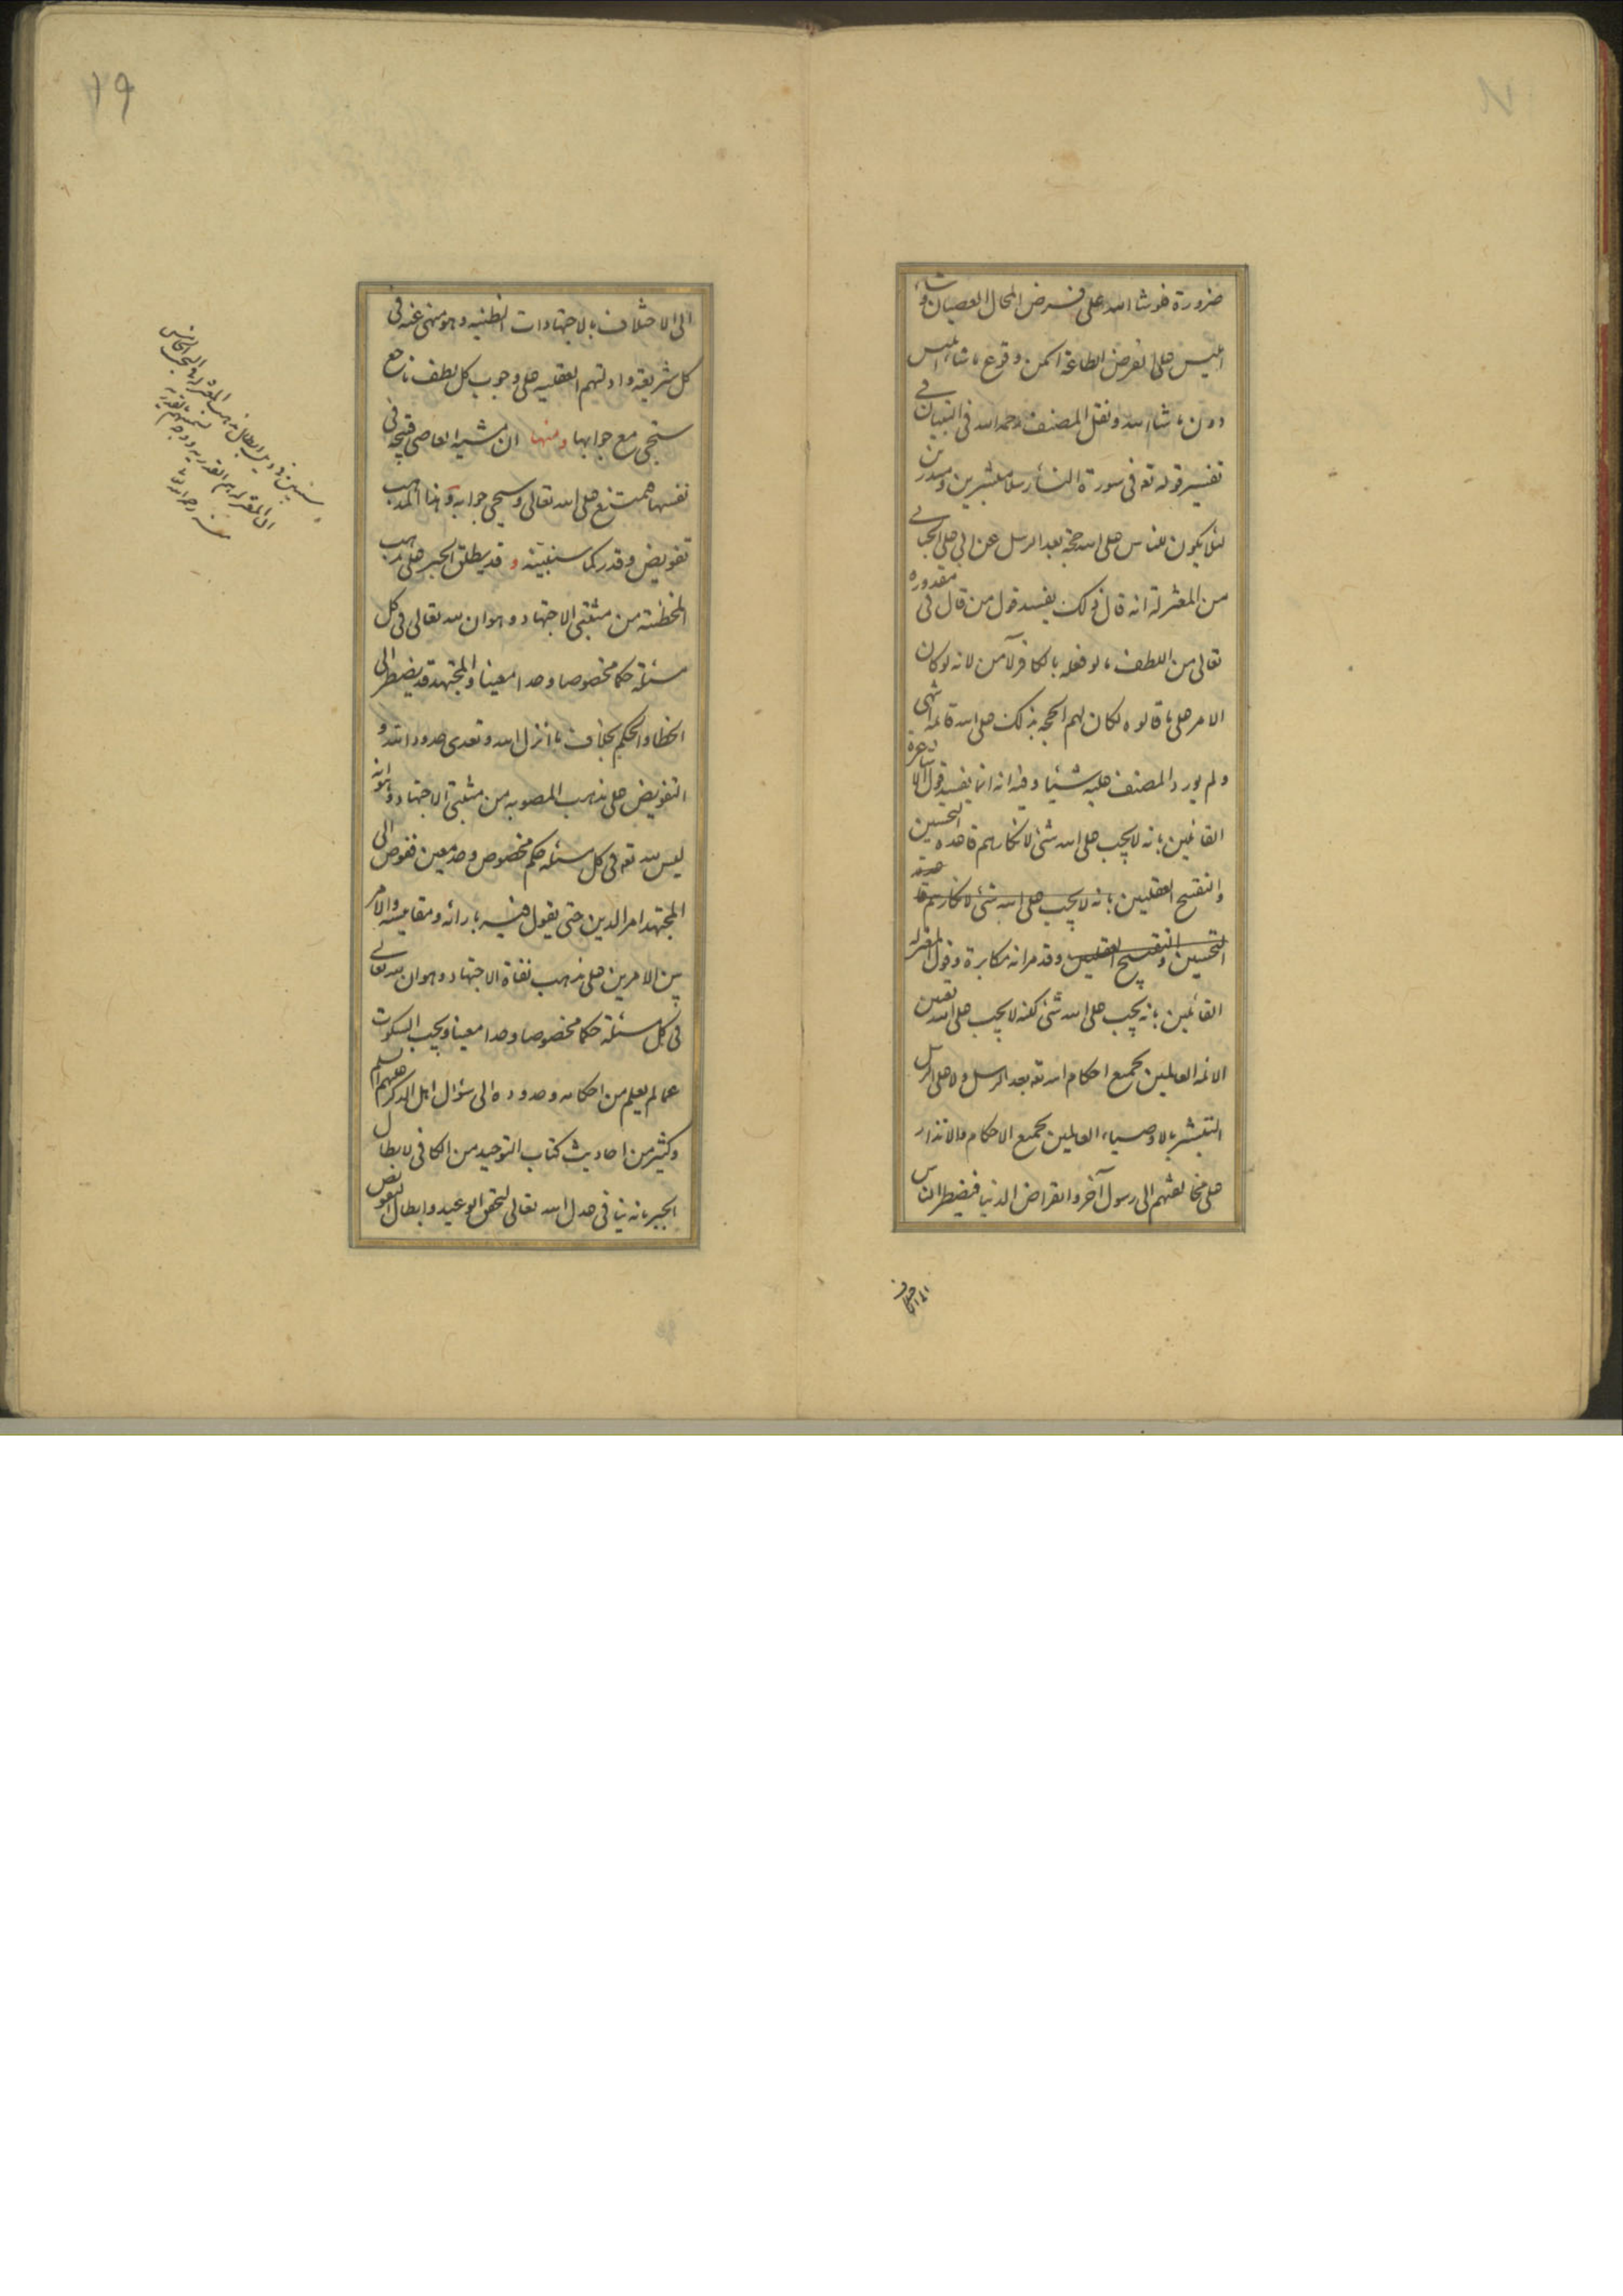 ضرورة فلو شاء الله على فرض المحال العصيان وشاء
ابليس على الفرض الطاعة امكن وقوع ما شاء ابليس
دون ما شاء الله ونقل المصنف رحمه الله في التبيان في
تفسير قوله تع في سورة النساء رسلا مبشرين ومنذرين
لئلا يكون للناس على الله حجة بعد الرسل عن ابي على الجبائي
من المعتزلة انه قال ذلك يفسد قول من قال في مقدوره
تعالى من اللطف ما لو فعله بالكافر لآمن لانه لو كان
الامر على ما قالوه لكان لهم الحجة بذلك على الله قائمة انتهى
ولم يورد المصنف عليه شيئا وفيه انه انما يفسد قول الاشاعرة
القائلين بانه لا يجب على الله شئ لانكارهم قاعدة التحسين
والتقبيح العقليين بانه لا يجب على الله شئ لانكارهم قاعدة
التحسين والتقبيح العقليين وقد مر انه مكابرة وقول المعتزلة
القائلين بانه يجب على الله شئ لكنه لا يجب على الله تعيين
الائمة العالمين بجميع احكام الله تع بعد الرسل ولا على الرسل
التبشير بالاوصياء العالمين بجميع الاحكام والانذار
على مخالفتهم الى رسول آخر وانقراض الدنيا فيضطر الناس
الى الاختلاف
١٩
الى الاختلاف بالاجتهادات الظنيه وهو منهى عنه في
كل شريعة وادلتهم العقليه على وجوب كل لطف ناجع
ستجئ مع جوابها ومنها ان مشية المعاصى قبيحة في
نفسها فيمتنع على الله تعالى وسيجئ جوابه وهذا المذهب
تفويض وقدر كما سنبينه وقد يطلق الجبر على مذهب
المخطئة من مثبتى الاجتهاد وهو ان لله تعالى في كل
مسئلة حكما مخصوصا وحدا معينا والمجتهد قد يضطر الى
الخطا والحكم بخلاف ما انزل الله وتعدى حدود الله و
التفويض على مذهب المصوبه من مثبتى الاجتهاد وهو انه
ليس لله تع في كل مسئلة حكم مخصوص وحد معين ففوض الى
المجتهد امر الدين حتى يقول فيه بارائه ومقاييسه والامر
بين الامرين على مذهب نفاة الاجتهاد وهو ان لله تعالى
في كل مسئلة حكما مخصوصا وحدا معينا ويجب السكوت
عما لم يعلم من احكامه وحدوده الى سؤال اهل الذكر عليهم السلم
وكثير من احاديث كتاب التوحيد من الكافى لابطال
الجبر بانه ينافى عدل الله تعالى لتحقق الوعيد وابطال التفويض